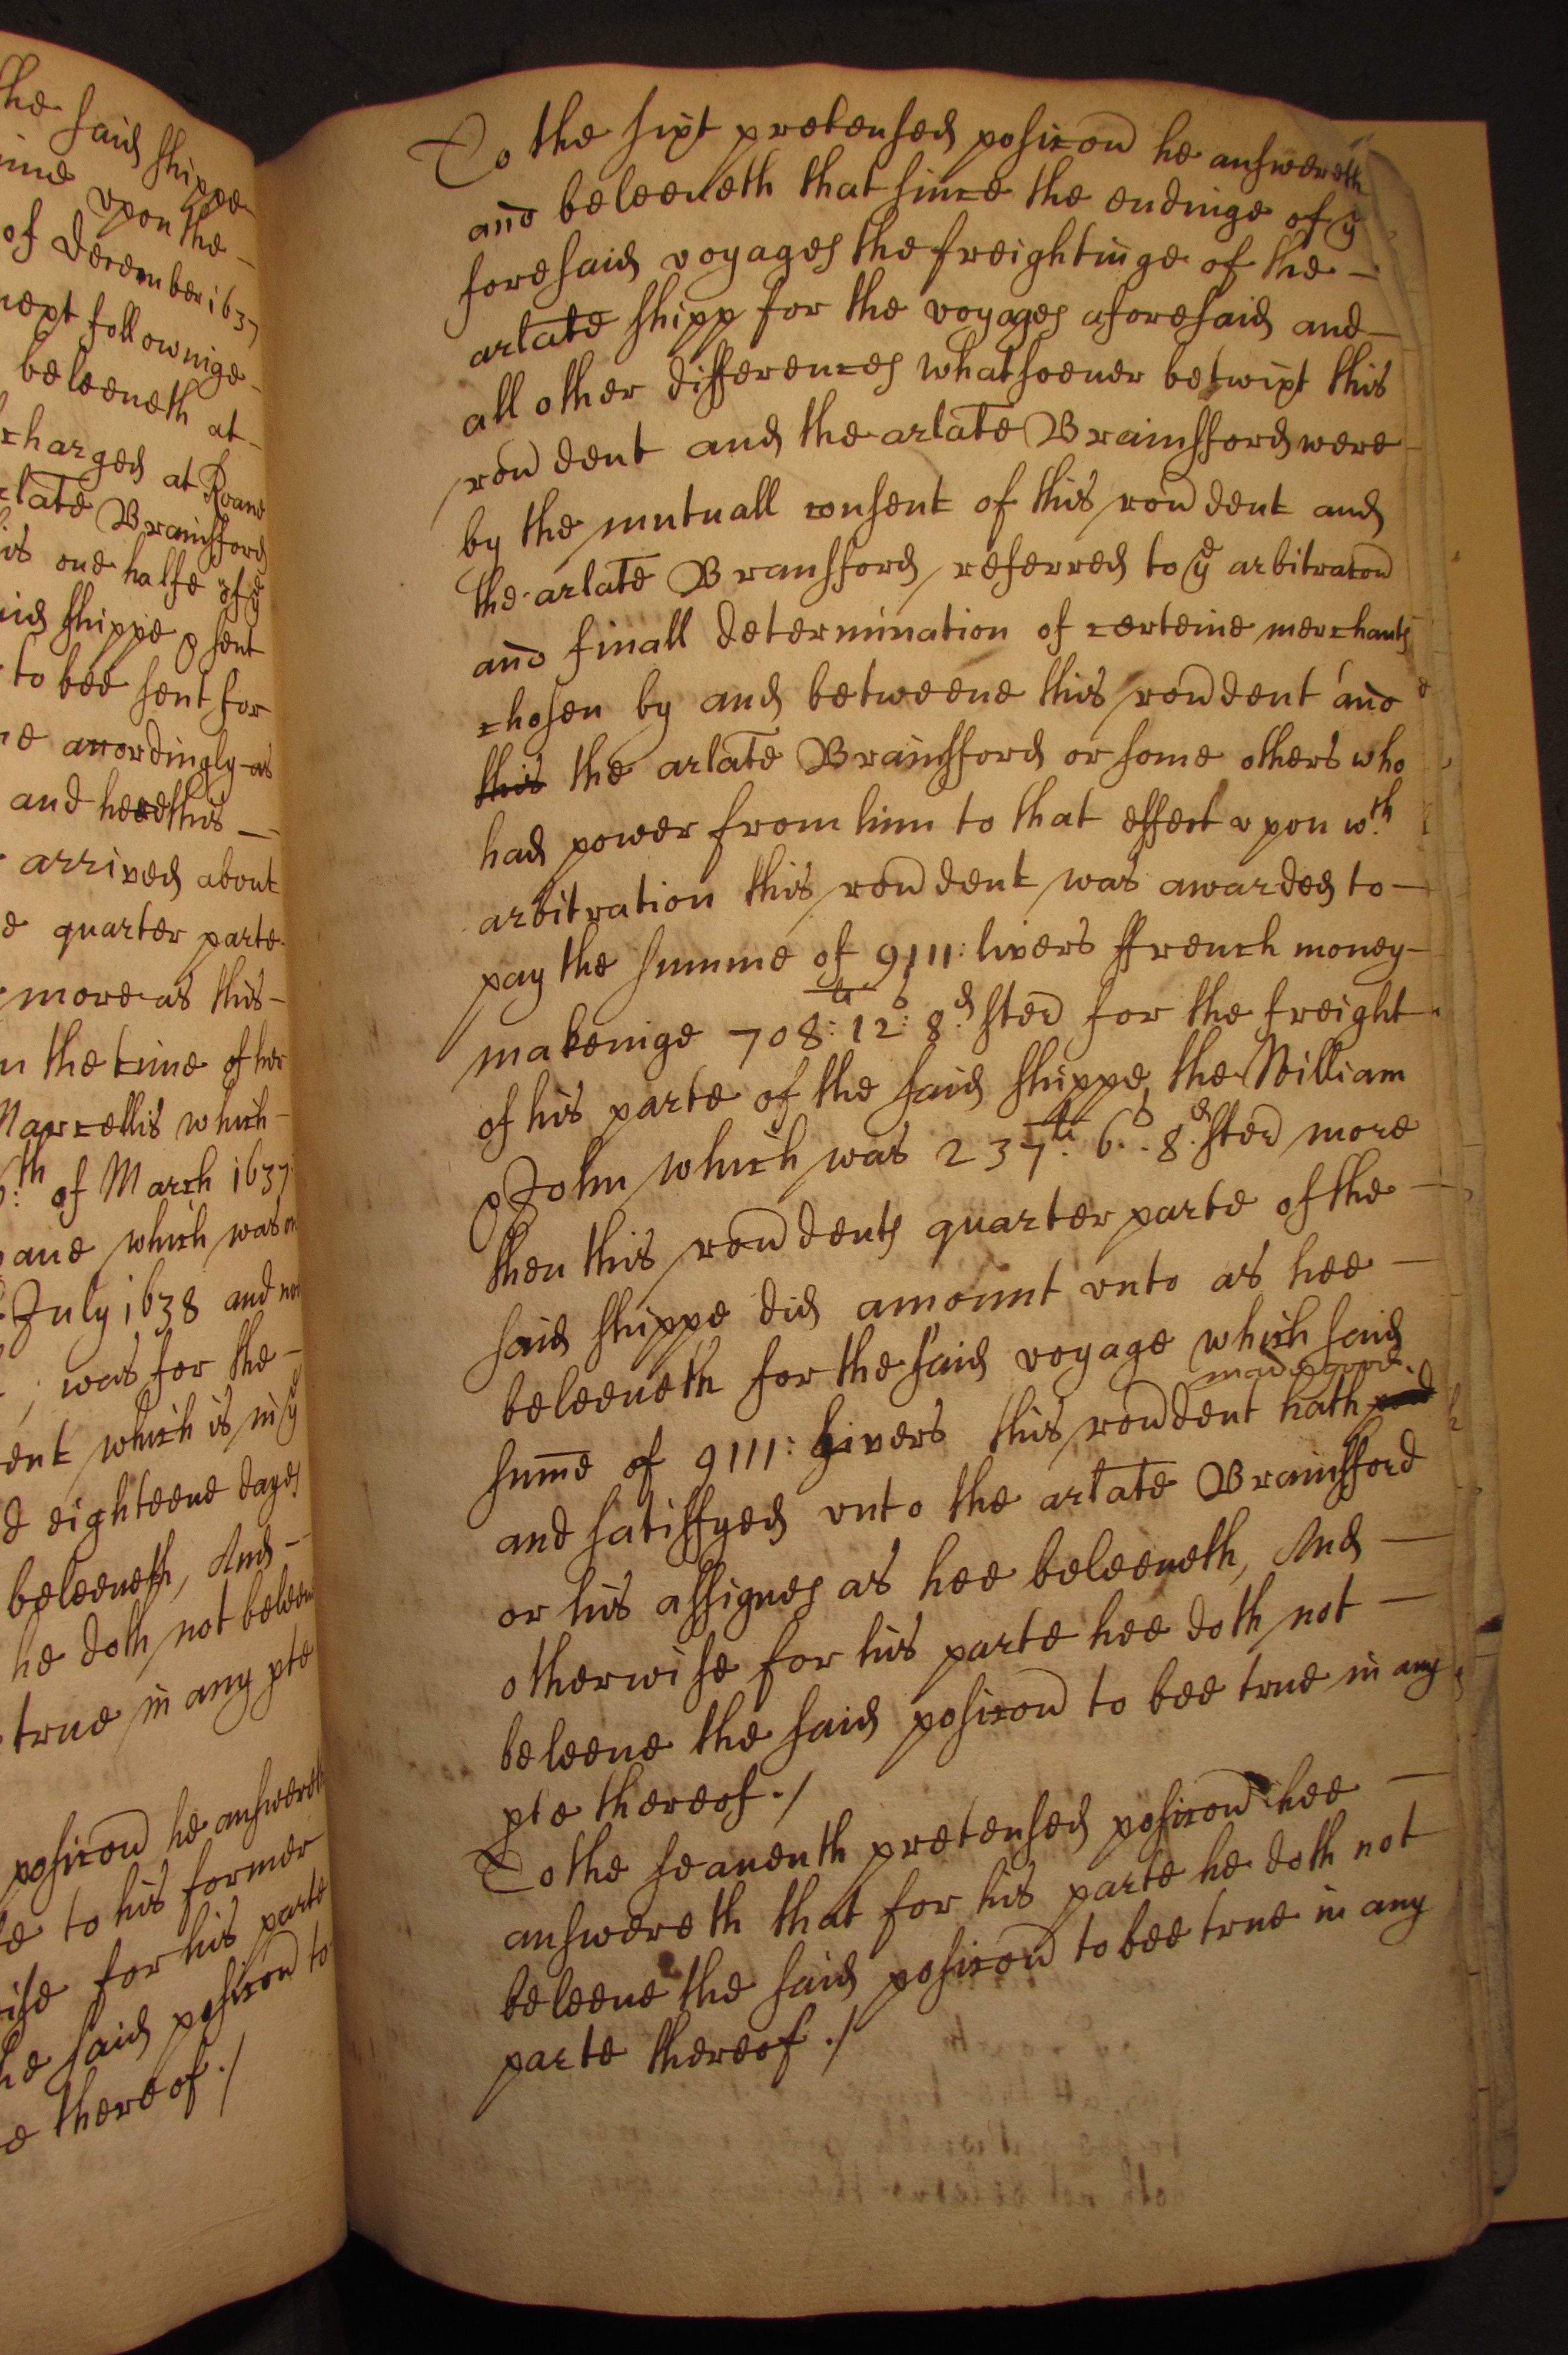 he said shippe
ime upon the
of December 1637
next followinge
beleeueth at
charged at Roane
rlate Brainsford
is one halfe of ye
aid shippe & sent
to bee sent for
accordingly as
and hee this
arrived about
e quarter parte
more as this
n the time of her
Marcellis which
th of March 1637
ane which was
July 1638 and
was for the
ent which is in ye
d eighteene dayes
beleeueth, And
he doth not beleeue
true in any pte
posicon he answereth
e to his former
ise for his parte
he said posicon to
e thereof ./
To the sixt pretensed posicon he answereth
and beleeueth that since the endinge of ye
foresaid voyages the freightinge of the
arlate shipp for the voyages aforesaid and
all other differences whatsoeuer betwixt this
rondent and the arlate Brainsfford were
by the mutuall consent of this rondent and
the arlate Bransfford referred to ye arbitracon
and finall determination of certeine merchants
chosen by and betweene this rondent and
this the arlate Brainsfford or some others who
had power from him to that effect upon wth
arbitration this rondent was awarded to
pay the summe of 9111: livers ffrench money
makeinge 708li: 12s: 8d sterl for the freight
of his parte of the said shippe the William
& John which was 237li: 6s: 8d sterl more
then this rondents quarter parte of the
said shippe did amount unto as hee
beleeueth for the said voyage which said
summe of 9111: livers this rondent hath paid made good
and satisfyed unto the arlate Brainsfford
or his assignes as hee beleeueth, And
otherwise for his parte hee doth not
beleeue the said posicon to bee true in any
pte thereof ./
To the seauenth pretensed posicon hee
answereth that for his parte he doth not
beleeue the said posicon to bee true in any
parte thereof ./